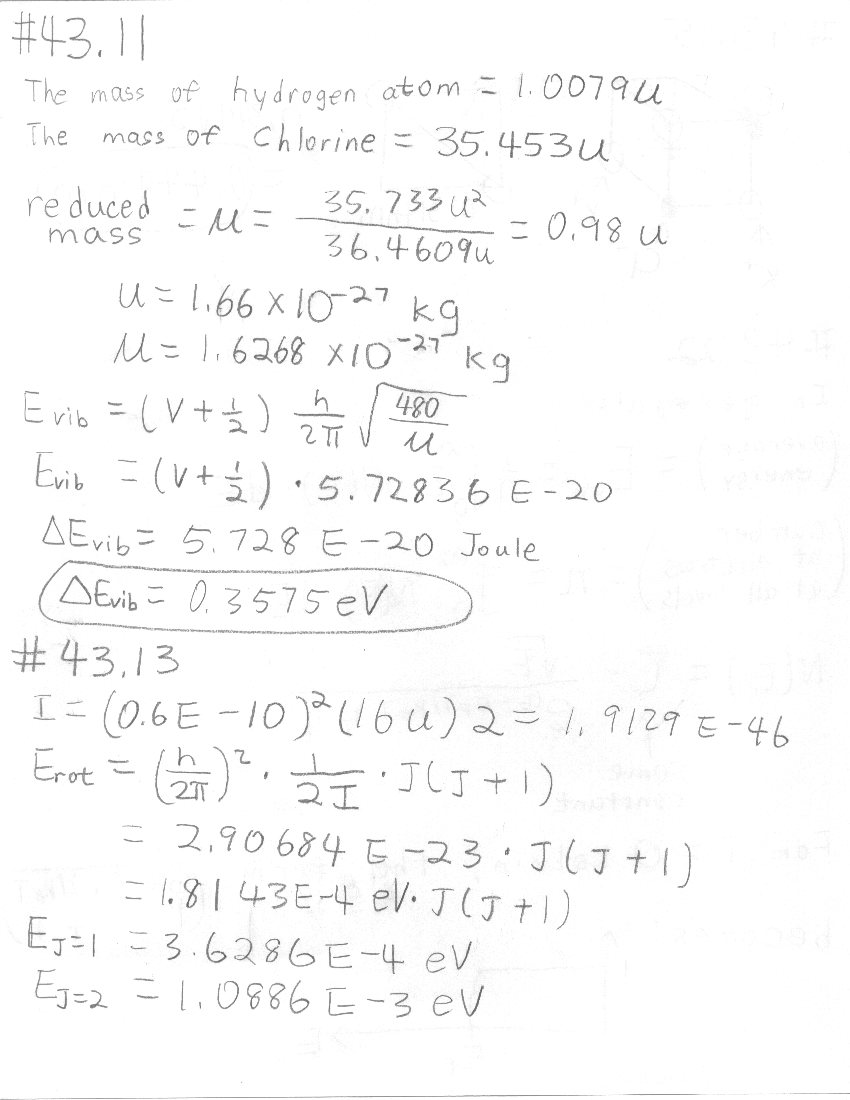 #43.11
The mass of hydrogen atom = 1.0079u
The mass of Chlorine = 35.453u
reduced mass = μ = 35.733u² / 36.4609u = 0.98 u
u = 1.66 × 10⁻²⁷ kg
μ = 1.6268 × 10⁻²⁷ kg
E vib = (V + 1/2) h/2π √(480/μ)
Evib = (V + 1/2) · 5.72836 E-20
ΔEvib = 5.728 E-20 Joule
ΔEvib = 0.3575 eV
#43.13
I = (0.6E-10)² (16u) 2 = 1.9129 E-46
Erot = (h/2π)² · 1/2I · J(J+1)
= 2.90684 E-23 · J(J+1)
= 1.8143E-4 eV · J(J+1)
E J=1 = 3.6286 E-4 eV
E J=2 = 1.0886 E-3 eV